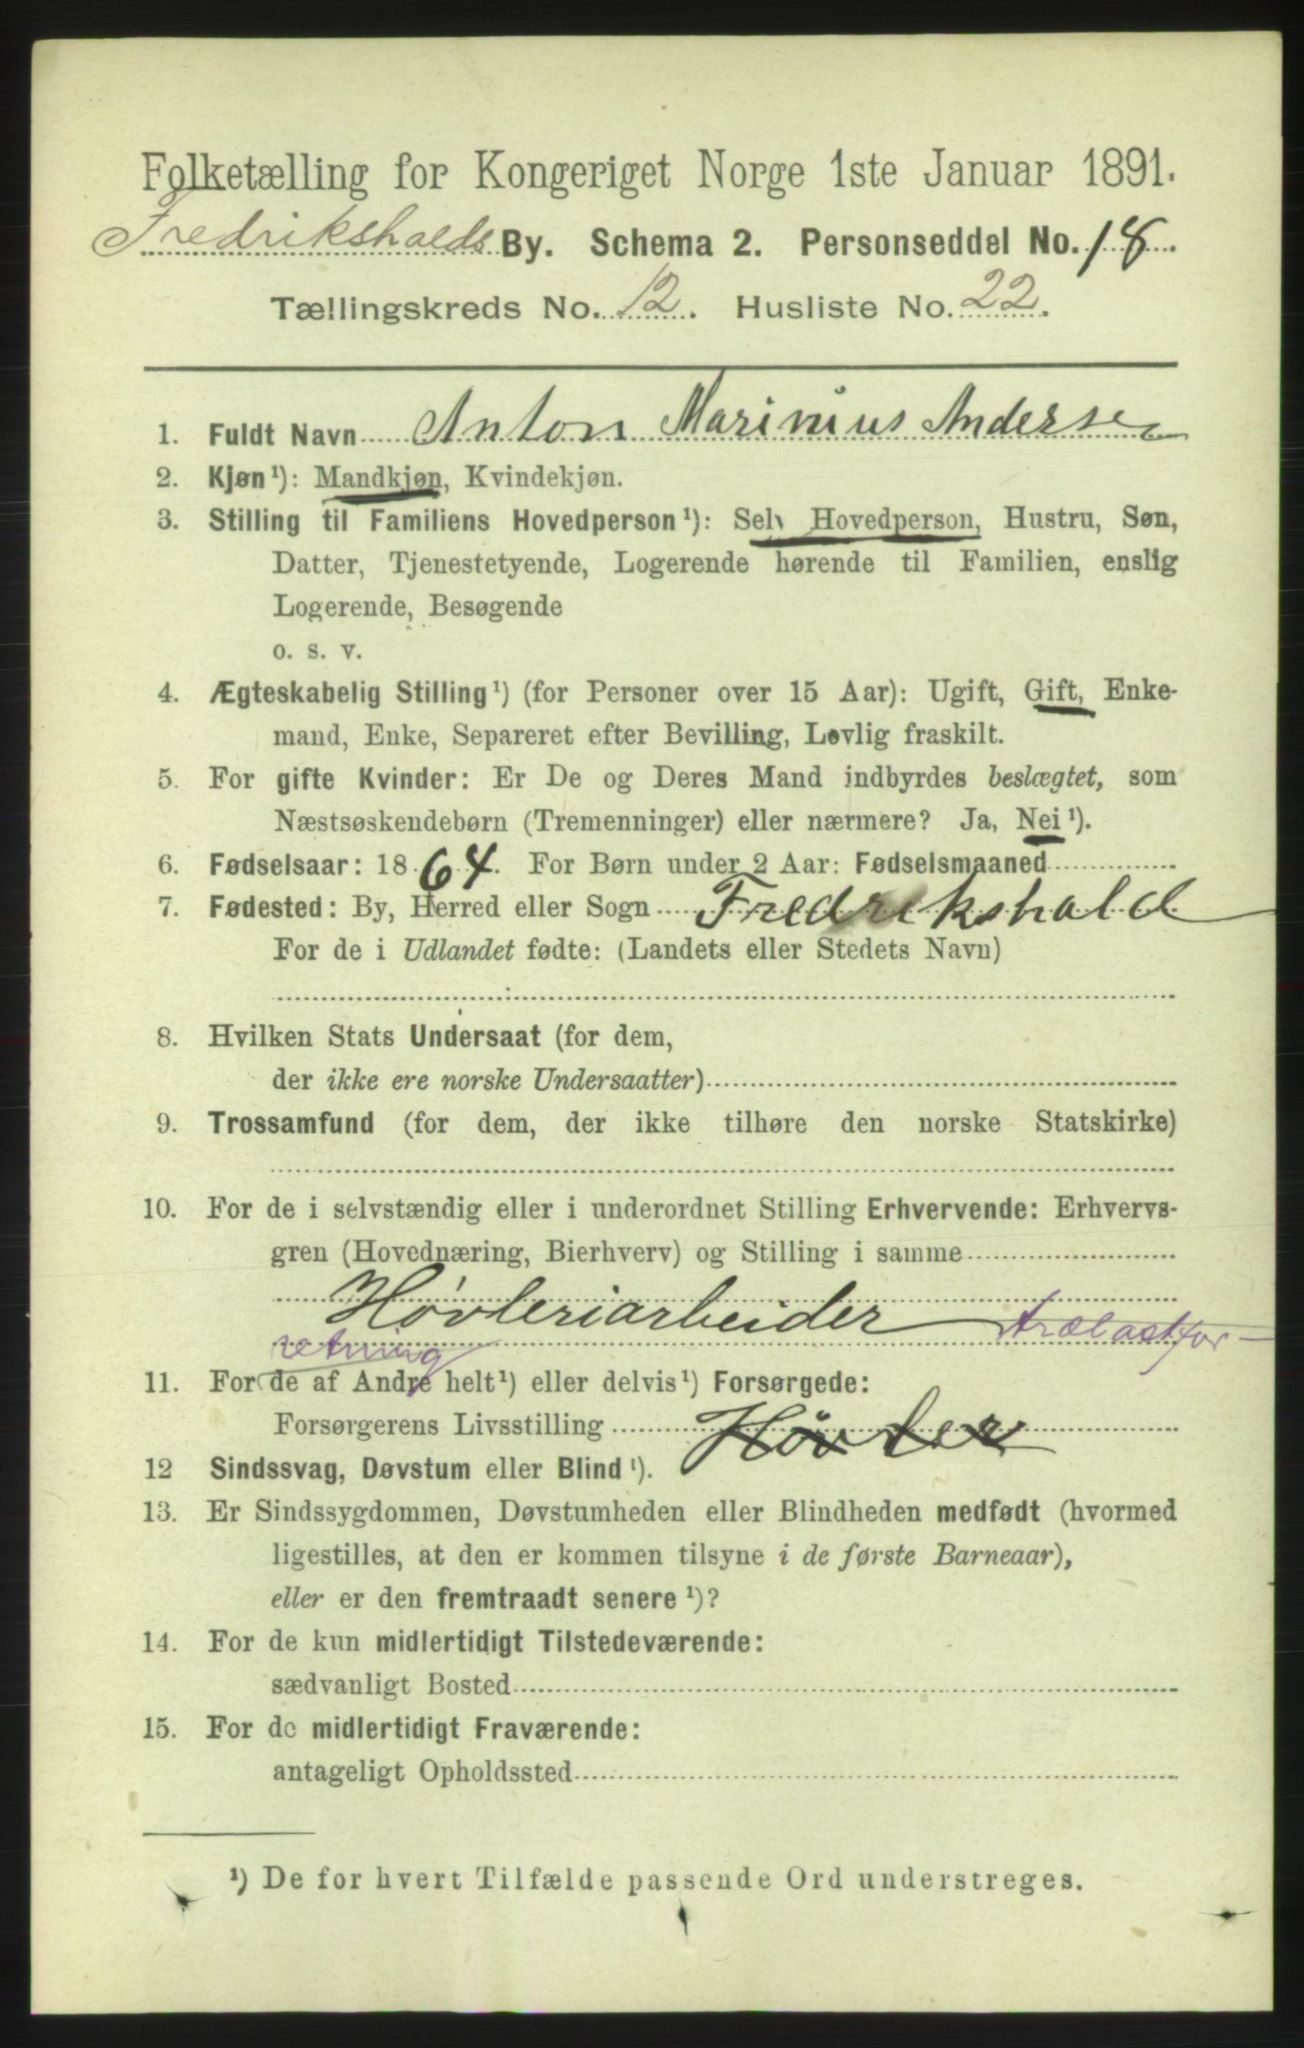 Folketælling for Kongeriget Norge 1ste Januar 1891.
Fredrikshalds By. Schema 2. Personseddel No. 18.
Tællingskreds No. 12. Husliste No. 22.
1. Fuldt Navn Anton Marinius Andersen
2. Kjøn¹): Mandkjøn, Kvindekjøn.
3. Stilling til Familiens Hovedperson¹): Selv Hovedperson, Hustru, Søn,
Datter, Tjenestetyende, Logerende hørende til Familien, enslig
Logerende, Besøgende
o. s. v.
4. Ægteskabelig Stilling¹) (for Personer over 15 Aar): Ugift, Gift, Enke-
mand, Enke, Separeret efter Bevilling, Lovlig fraskilt.
5. For gifte Kvinder: Er De og Deres Mand indbyrdes beslægtet, som
Næstsøskendebørn (Tremenninger) eller nærmere? Ja, Nei¹).
6. Fødselsaar: 1864. For Børn under 2 Aar: Fødselsmaaned
7. Fødested: By, Herred eller Sogn Fredrikshald
For de i Udlandet fødte: (Landets eller Stedets Navn)
8. Hvilken Stats Undersaat (for dem,
der ikke ere norske Undersaatter)
9. Trossamfund (for dem, der ikke tilhøre den norske Statskirke)
10. For de i selvstændig eller i underordnet Stilling Erhvervende: Erhvervs-
gren (Hovednæring, Bierhverv) og Stilling i samme
Høvleriarbeider trælastfor-
retning
11. For de af Andre helt¹) eller delvis¹) Forsørgede:
Forsørgerens Livsstilling Høvler
12 Sindssvag, Døvstum eller Blind¹).
13. Er Sindssygdommen, Døvstumheden eller Blindheden medfødt (hvormed
ligestilles, at den er kommen tilsyne i de første Barneaar),
eller er den fremtraadt senere¹)?
14. For de kun midlertidigt Tilstedeværende:
sædvanligt Bosted
15. For de midlertidigt Fraværende:
antageligt Opholdssted
¹) De for hvert Tilfælde passende Ord understreges.